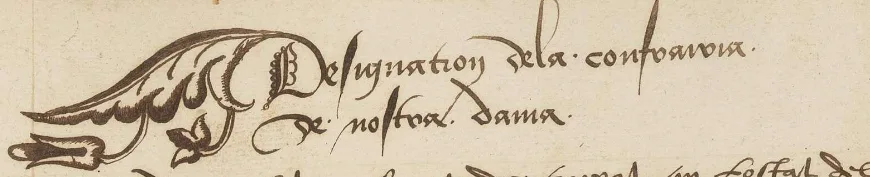 Designation dela · confrairia ·
de · nostra · dama ·